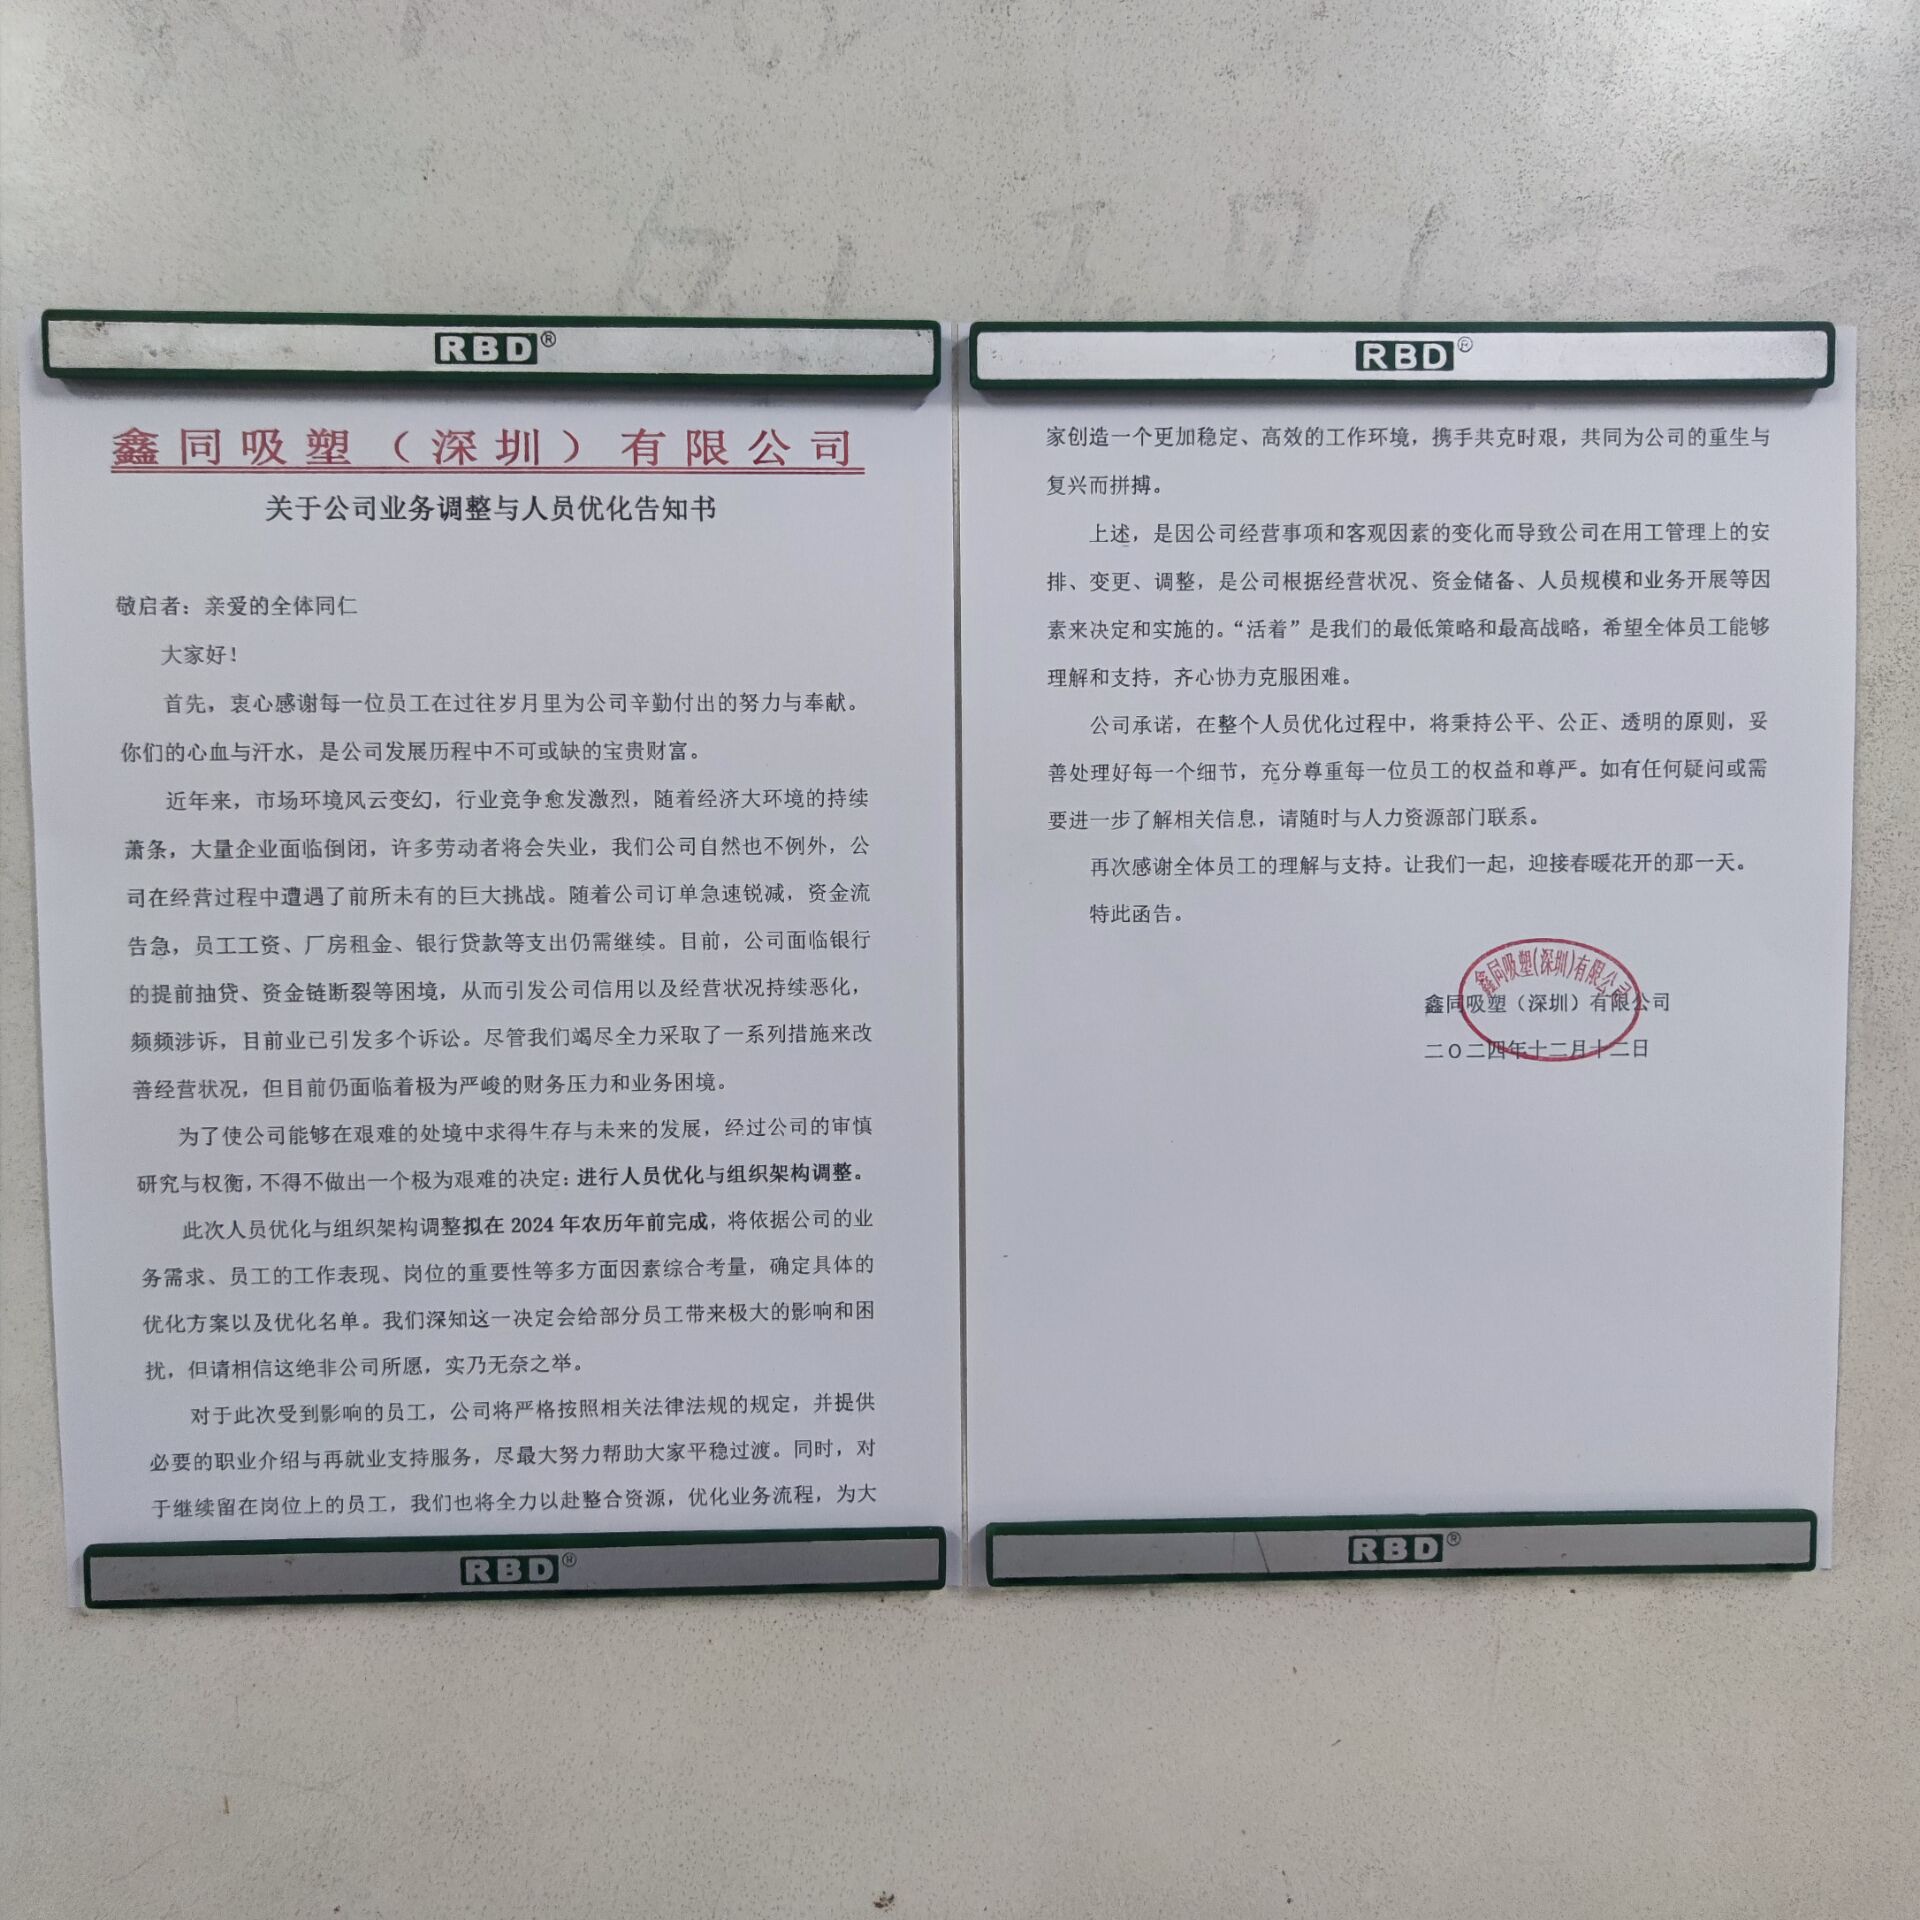 RBD®
鑫同吸塑（深圳）有限公司
关于公司业务调整与人员优化告知书
敬启者：亲爱的全体同仁
大家好！
首先，衷心感谢每一位员工在过往岁月里为公司辛勤付出的努力与奉献。
你们的心血与汗水，是公司发展历程中不可或缺的宝贵财富。
近年来，市场环境风云变幻，行业竞争愈发激烈，随着经济大环境的持续
萧条，大量企业面临倒闭，许多劳动者将会失业，我们公司自然也不例外，公
司在经营过程中遭遇了前所未有的巨大挑战。随着公司订单急速锐减，资金流
告急，员工工资、厂房租金、银行贷款等支出仍需继续。目前，公司面临银行
的提前抽贷、资金链断裂等困境，从而引发公司信用以及经营状况持续恶化，
频频涉诉，目前业已引发多个诉讼。尽管我们竭尽全力采取了一系列措施来改
善经营状况，但目前仍面临着极为严峻的财务压力和业务困境。
为了使公司能够在艰难的处境中求得生存与未来的发展，经过公司的审慎
研究与权衡，不得不做出一个极为艰难的决定：进行人员优化与组织架构调整。
此次人员优化与组织架构调整拟在 2024 年农历年前完成，将依据公司的业
务需求、员工的工作表现、岗位的重要性等多方面因素综合考量，确定具体的
优化方案以及优化名单。我们深知这一决定会给部分员工带来极大的影响和困
扰，但请相信这绝非公司所愿，实乃无奈之举。
对于此次受到影响的员工，公司将严格按照相关法律法规的规定，并提供
必要的职业介绍与再就业支持服务，尽最大努力帮助大家平稳过渡。同时，对
于继续留在岗位上的员工，我们也将全力以赴整合资源，优化业务流程，为大
RBD®
RBD®
家创造一个更加稳定、高效的工作环境，携手共克时艰，共同为公司的重生与
复兴而拼搏。
上述，是因公司经营事项和客观因素的变化而导致公司在用工管理上的安
排、变更、调整，是公司根据经营状况、资金储备、人员规模和业务开展等因
素来决定和实施的。“活着”是我们的最低策略和最高战略，希望全体员工能够
理解和支持，齐心协力克服困难。
公司承诺，在整个人员优化过程中，将秉持公平、公正、透明的原则，妥
善处理好每一个细节，充分尊重每一位员工的权益和尊严。如有任何疑问或需
要进一步了解相关信息，请随时与人力资源部门联系。
再次感谢全体员工的理解与支持。让我们一起，迎接春暖花开的那一天。
特此函告。
鑫同吸塑(深圳)有限公司
鑫同吸塑（深圳）有限公司
二〇二四年十二月十二日
RBD®